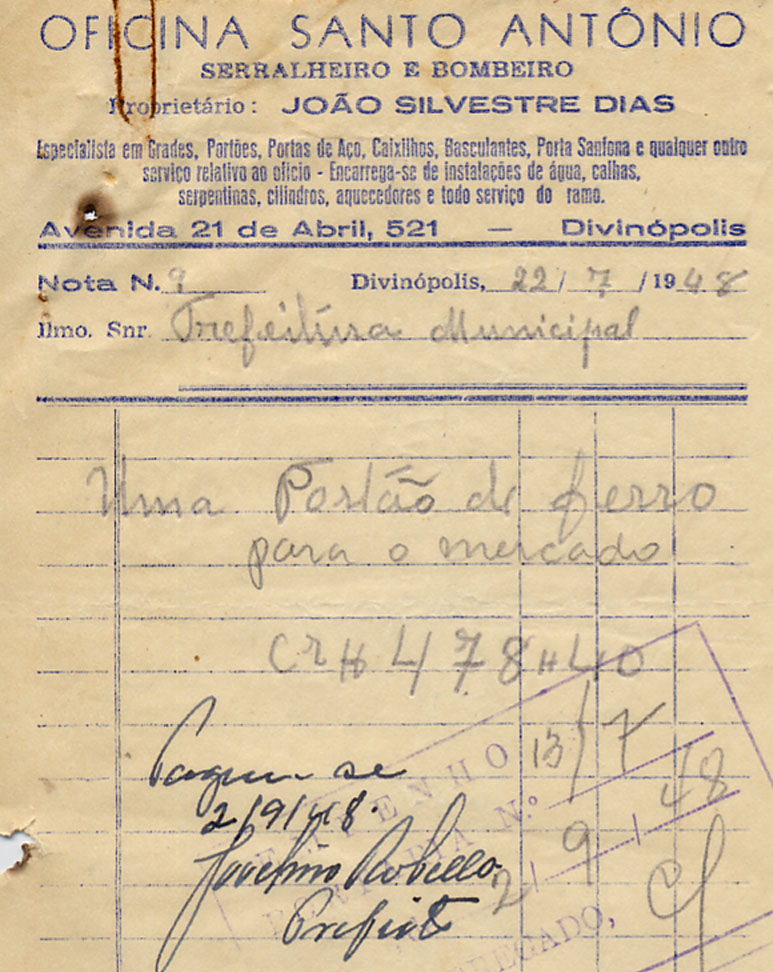 OFICINA SANTO ANTÔNIO
SERRALHEIRO E BOMBEIRO
Proprietário: JOÃO SILVESTRE DIAS
Especialista em Grades, Portões, Portas de Aço, Caixilhos, Basculantes, Porta Sanfona e qualquer outro
serviço relativo ao ofício - Encarrega-se de instalações de água, calhas,
serpentinas, cilindros, aquecedores e todo serviço do ramo.
Avenida 21 de Abril, 521 — Divinópolis
Nota N. 9 Divinópolis, 22 / 7 / 1948
Ilmo. Snr. Prefeitura Municipal
Uma Portão de ferro
para o mercado
Cr 478 40
Pague-se
2/9/48.
Jovelino Rabello
Prefeito
EMPENHO 13/7
PORTARIA N.º
2 / 9 / 48